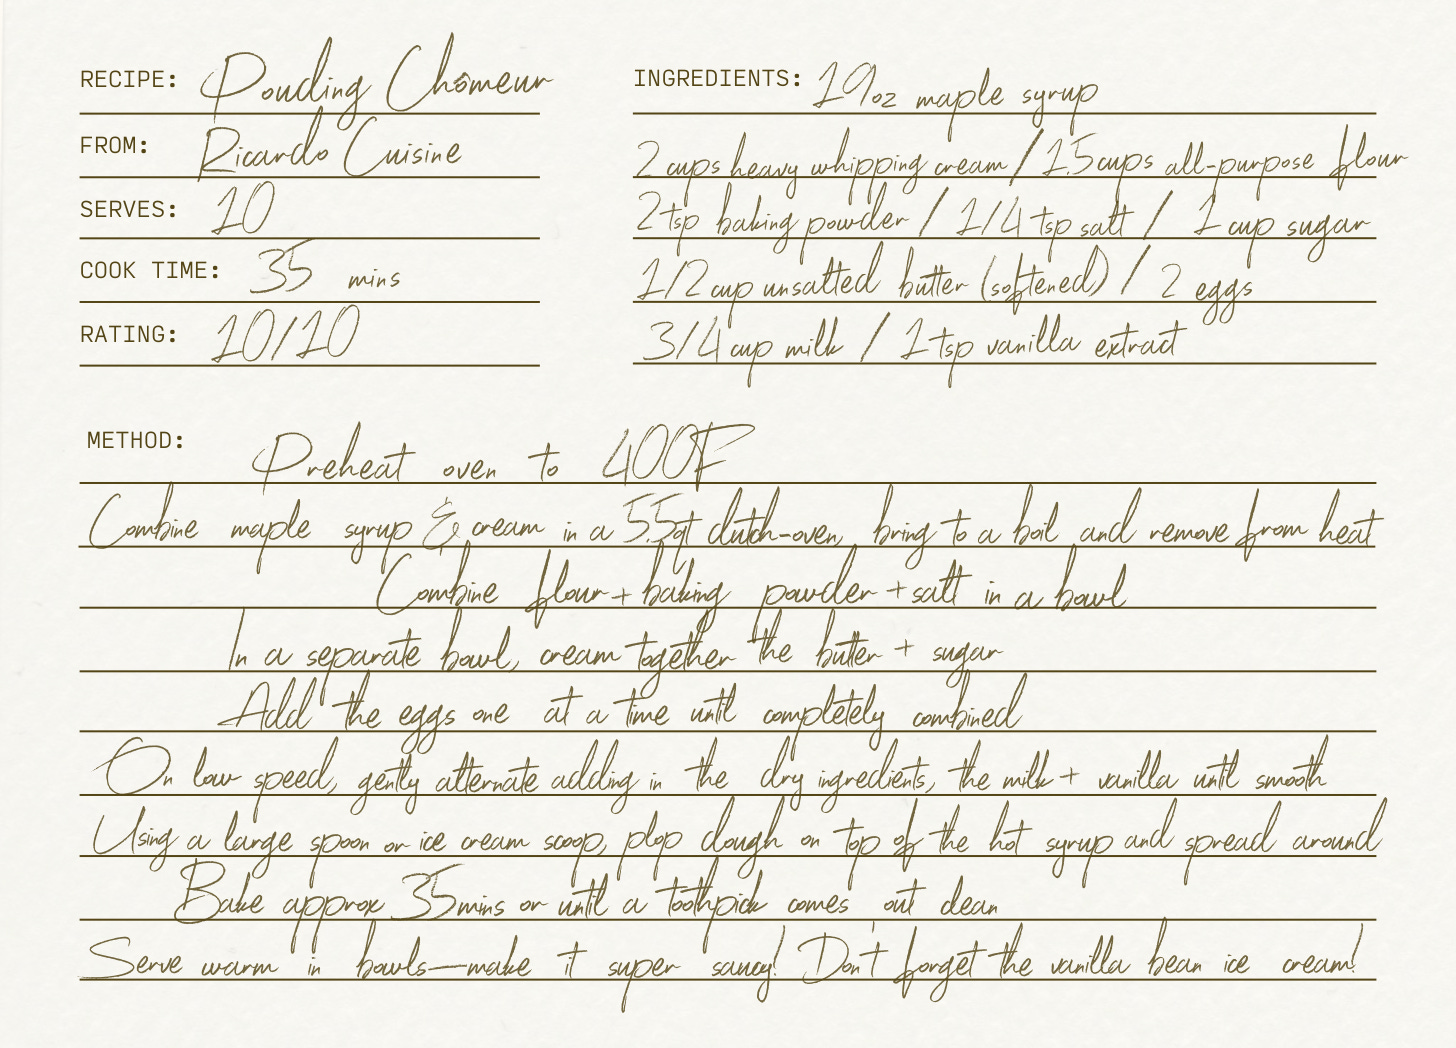 RECIPE: Pouding Chômeur
FROM: Ricardo Cuisine
SERVES: 10
COOK TIME: 35 mins
RATING: 10/10
INGREDIENTS: 19oz maple syrup
2 cups heavy whipping cream / 1.5 cups all-purpose flour
2 tsp baking powder / 1/4 tsp salt / 1 cup sugar
1/2 cup unsalted butter (softened) / 2 eggs
3/4 cup milk / 1 tsp vanilla extract
METHOD: Preheat oven to 400F
Combine maple syrup & cream in a 5.5qt dutch-oven, bring to a boil and remove from heat
Combine flour + baking powder + salt in a bowl
In a separate bowl, cream together the butter + sugar
Add the eggs one at a time until completely combined
On low speed, gently alternate adding in the dry ingredients, the milk + vanilla until smooth
Using a large spoon or ice cream scoop, plop dough on top of the hot syrup and spread around
Bake approx 35mins or until a toothpick comes out clean
Serve warm in bowls—make it super saucy! Don't forget the vanilla bean ice cream!